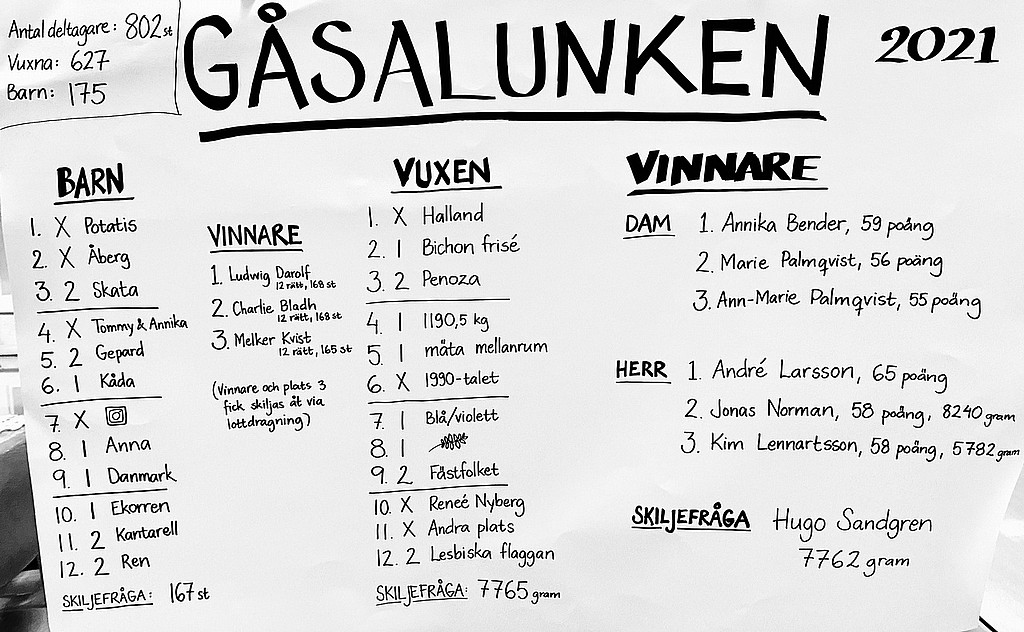 Antal deltagare: 802 st
Vuxna: 627
Barn: 175
GÅSALUNKEN
2021
BARN
1. X Potatis
2. X Åberg
3. 2 Skata
4. X Tommy & Annika
5. 2 Gepard
6. 1 Kåda
7. X
8. 1 Anna
9. 1 Danmark
10. 1 Ekorren
11. 2 Kantarell
12. 2 Ren
SKILJEFRÅGA: 167 st
VINNARE
1. Ludwig Darolf
12 rätt, 168 st
2. Charlie Bladh
12 rätt, 168 st
3. Melker Kvist
12 rätt, 165 st
(Vinnare och plats 3
fick skiljas åt via
lottdragning)
VUXEN
1. X Halland
2. 1 Bichon frisé
3. 2 Penoza
4. 1 1190,5 kg
5. 1 mäta mellanrum
6. X 1990-talet
7. 1 Blå/violett
8. 1
9. 2 Fästfolket
10. X Reneé Nyberg
11. X Andra plats
12. 2 Lesbiska flaggan
SKILJEFRÅGA: 7765 gram
VINNARE
DAM 1. Annika Bender, 59 poäng
2. Marie Palmqvist, 56 poäng
3. Ann-Marie Palmqvist, 55 poäng
HERR 1. André Larsson, 65 poäng
2. Jonas Norman, 58 poäng, 8240 gram
3. Kim Lennartsson, 58 poäng, 5782 gram
SKILJEFRÅGA Hugo Sandgren
7762 gram